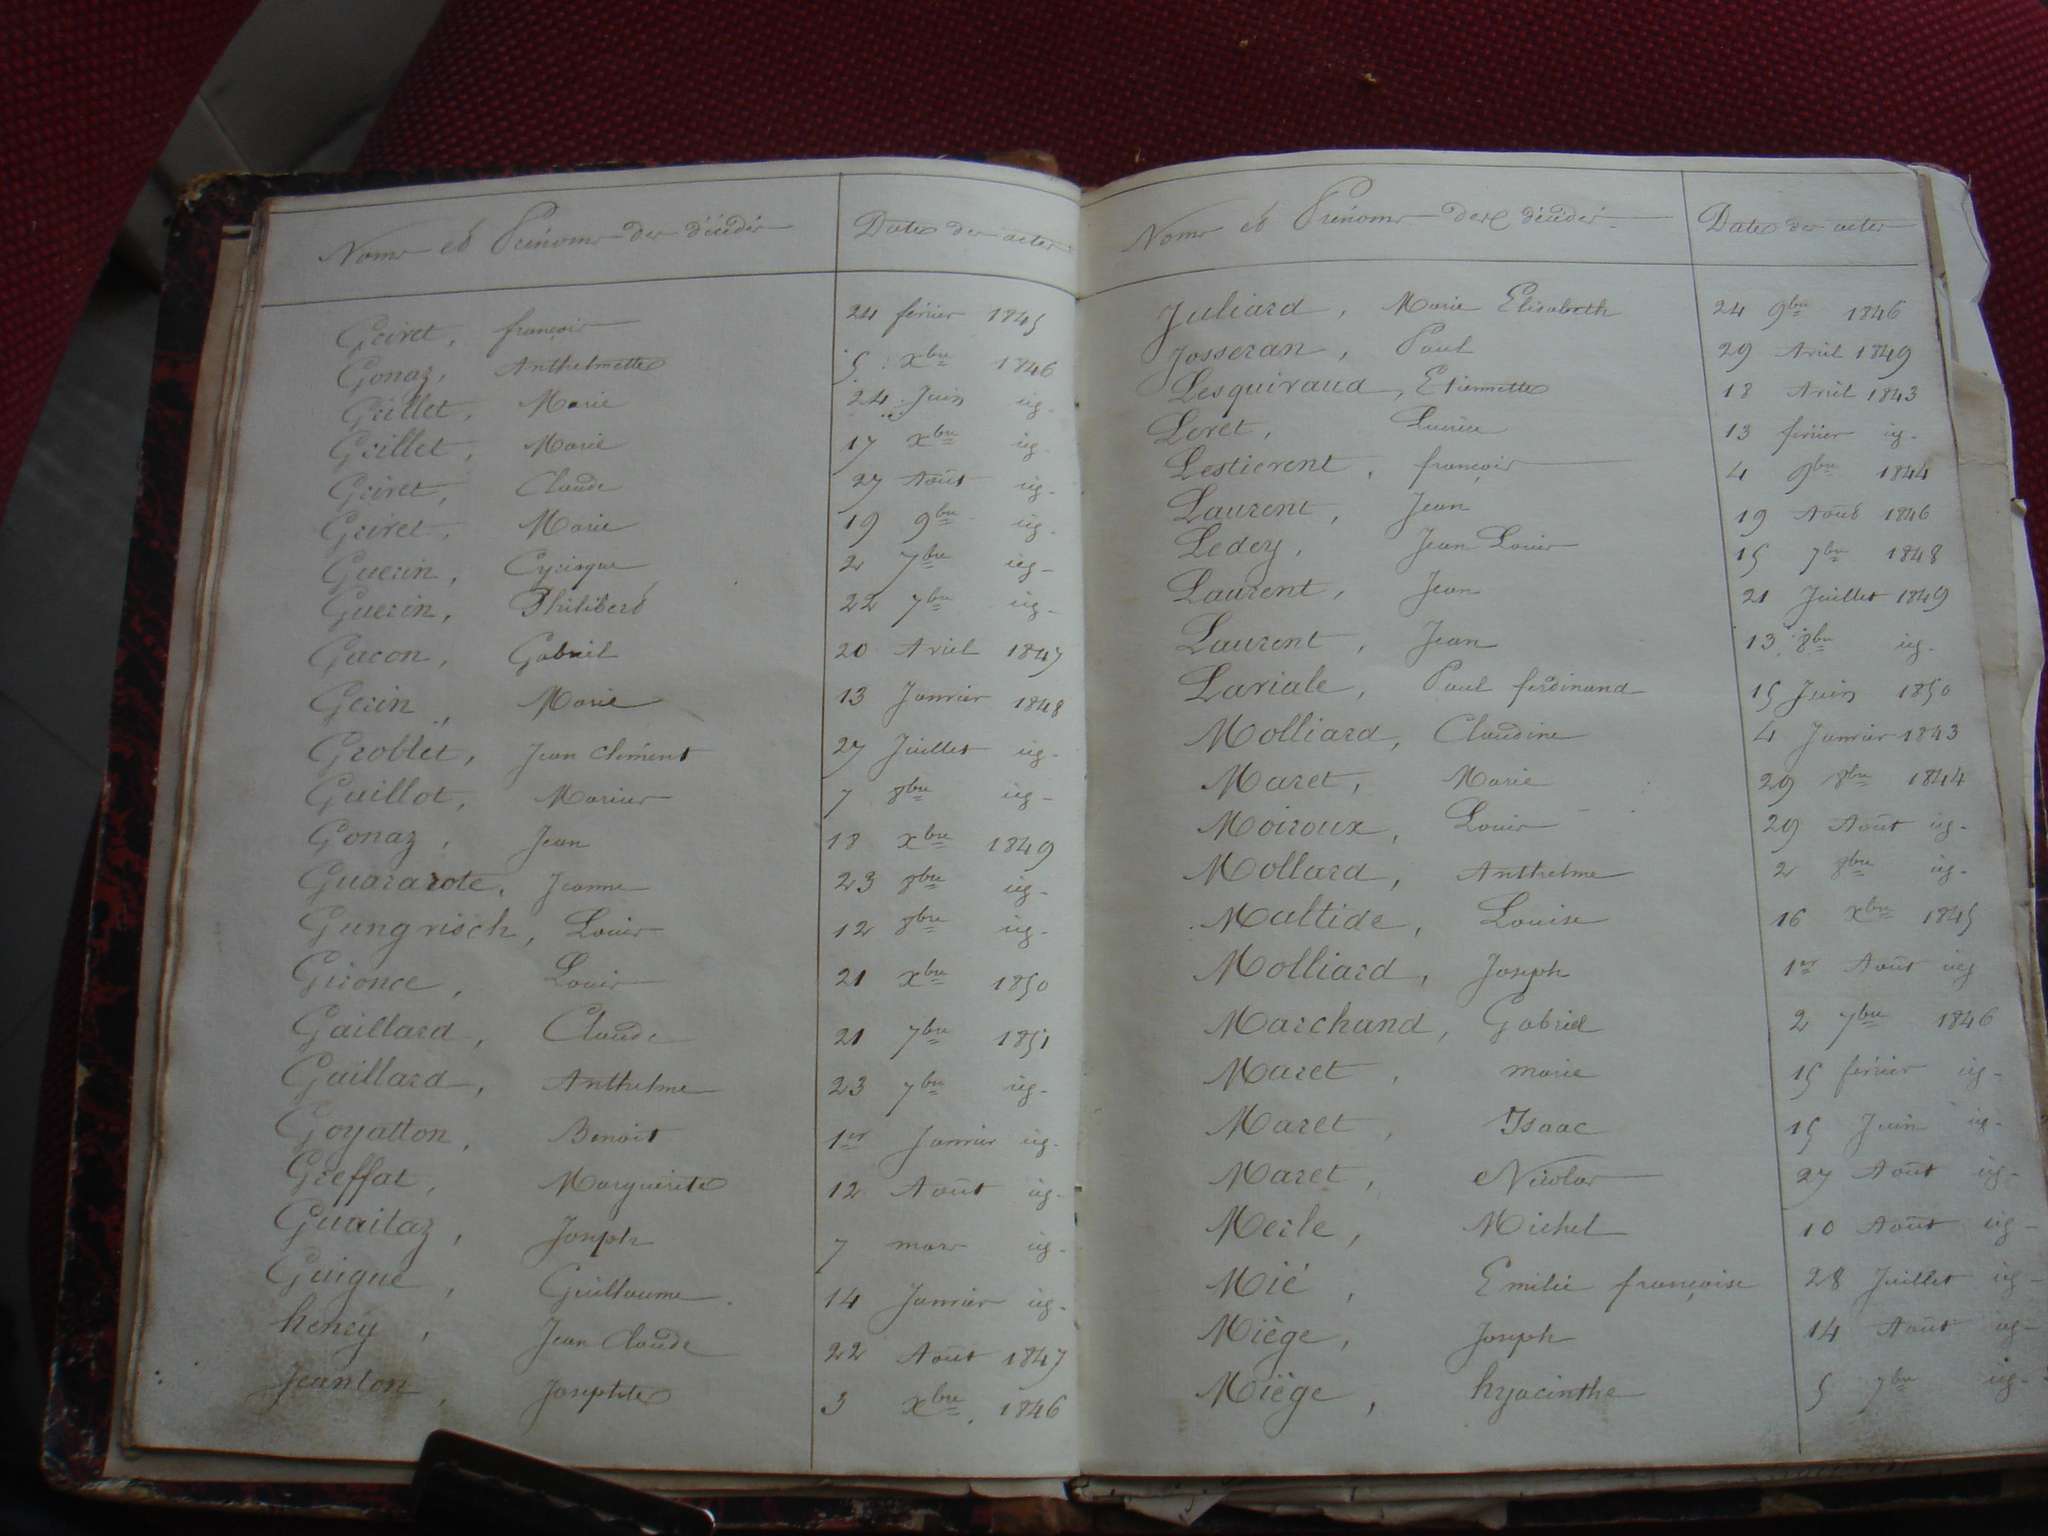 Noms et Prénoms des décédés
Dates des actes
Griret, françois 24 février 1845
Gonaz, Anthelmette 5 Xbre 1846
Grillet, Marie 24 Juin ig-
Grillet, Marie 17 Xbre ig-
Griret, Claude 27 Août ig-
Griret, Marie 19 9bre ig-
Guerin, Cyriaque 2 7bre ig-
Guerin, Philibert 22 7bre ig-
Gacon, Gabriel 20 Avril 1847
Gerin, Marie 13 Janvier 1848
Groblet, Jean Clément 27 Juillet ig-
Guillot, Marius 7 8bre ig-
Gonaz, Jean 18 Xbre 1849
Jeanne 23 8bre ig-
Gungrisch, Louis 12 8bre ig-
Gironce, Louis 21 Xbre 1850
Gaillard, Claude 21 7bre 1851
Gaillard, Anthelme 23 7bre ig-
Goyatton, Benoît 1er Janvier ig-
Greffat, Marguerite 12 Août ig-
Guaitaz, Joseph 7 mars ig-
Guigue, Guillaume 14 Janvier ig-
heney, Jean Claude 22 Août 1847
Jeanton, Josephte 3 Xbre 1846
Noms et Prénoms des décédés
Dates des actes
Juliard, Marie Elisabeth 24 9bre 1846
Josseran, Paul 29 Avril 1849
Lesquiraud, Etiennette 18 Avril 1843
Loret, 13 février ig-
Lestierent, françois 4 9bre 1844
Laurent, Jean 19 Août 1846
Ledey, Jean Louis 15 7bre 1848
Laurent, Jean 21 Juillet 1849
Laurent, Jean 13 8bre ig-
Lariale, Paul ferdinand 15 Juin 1850
Molliard, Claudine 4 Janvier 1843
Maret, Marie 29 8bre 1844
Moiroux, Louis 29 Août ig-
Mollard, Anthelme 2 8bre ig-
Maltide, Louise 16 Xbre 1845
Molliard, Joseph 1er Août ig
Marchand, Gabriel 2 7bre 1846
Maret, marie 15 février ig-
Maret, Isaac 15 Juin ig-
Maret, Nicolas 27 Août ig-
Merle, Michel 10 Août ig-
Mié, Emilie françoise 28 Juillet ig-
Miège, Joseph 14 Août ig-
Miège, hyacinthe 5 7bre ig-